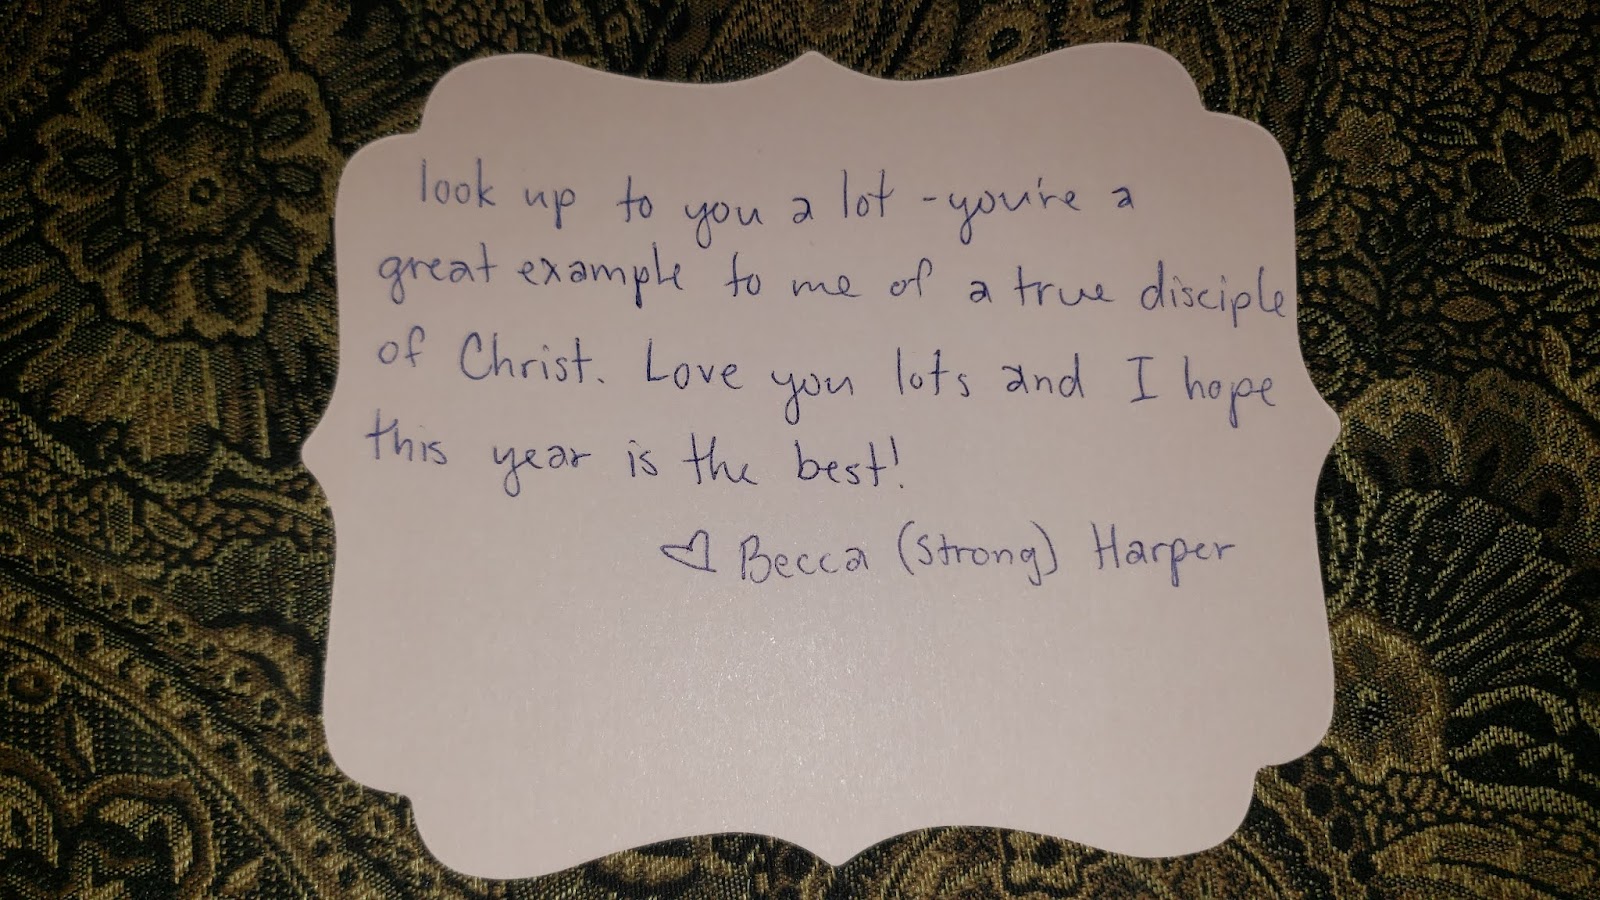 look up to you a lot - you're a
great example to me of a true disciple
of Christ. Love you lots and I hope
this year is the best!
♡ Becca (Strong) Harper